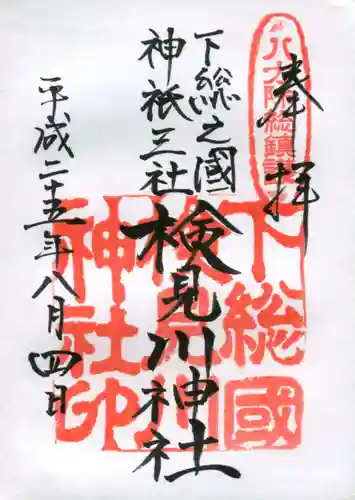 奉拝
八方除総鎮護
下総之國
神祇三社
検見川神社
平成二十五年八月四日
下総國
検見川
神社印